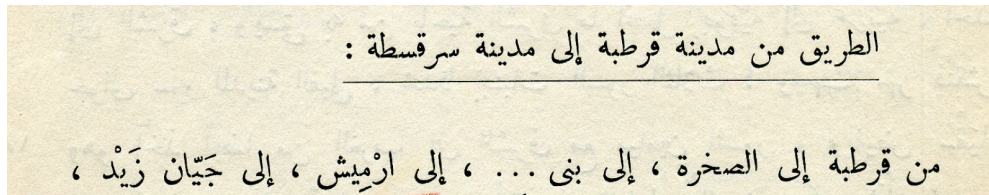 الطريق من مدينة قرطبة إلى مدينة سرقسطة :
من قرطبة إلى الصخرة ، إلى بنى ... ، إلى ارْمِيش ، إلى جَيّان زَيْد ،